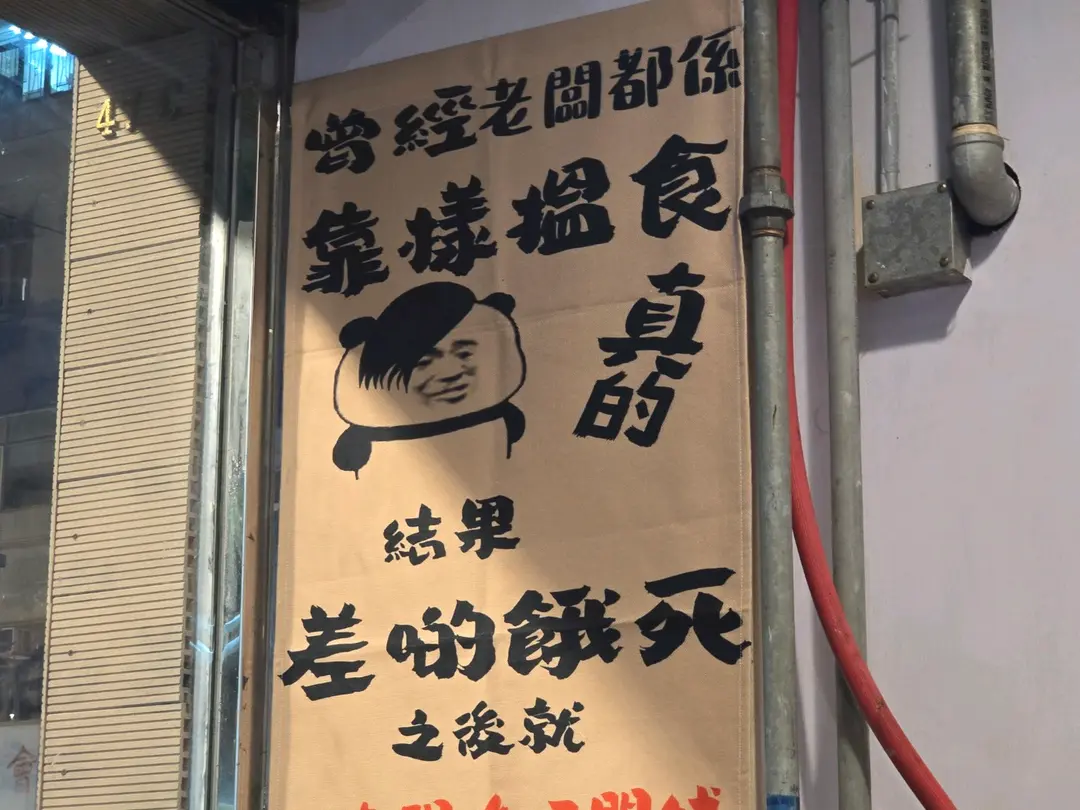 曾經老闆都係
靠樣搵食
真的
結果
差啲餓死
之後就